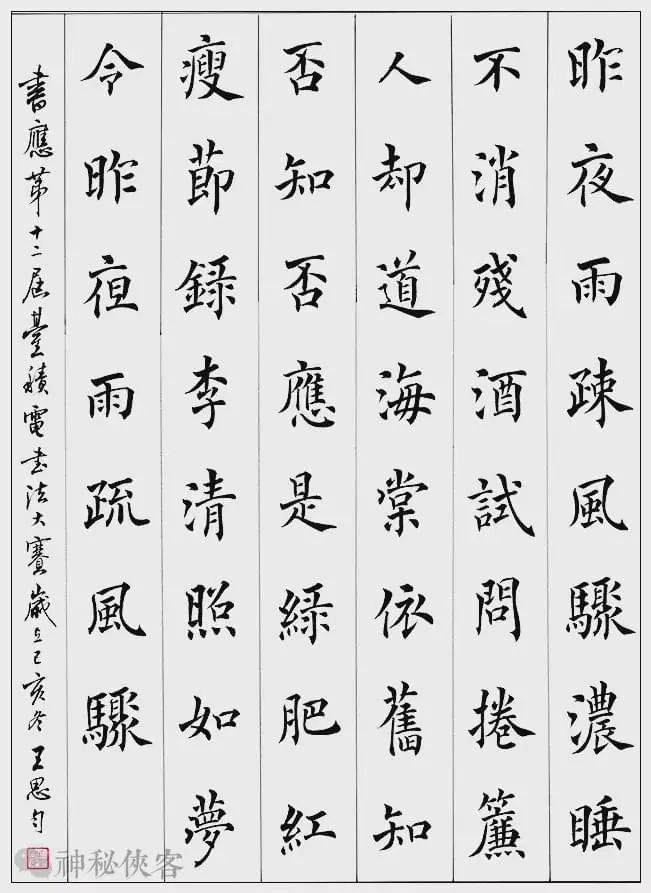 昨夜雨疎風驟濃睡
不消殘酒試問捲簾
人却道海棠依舊知
否知否應是綠肥紅
瘦節錄李清照如夢
令昨夜雨疏風驟
書應第十二屆臺積電書法大賽歲在己亥冬王思勻
神秘俠客